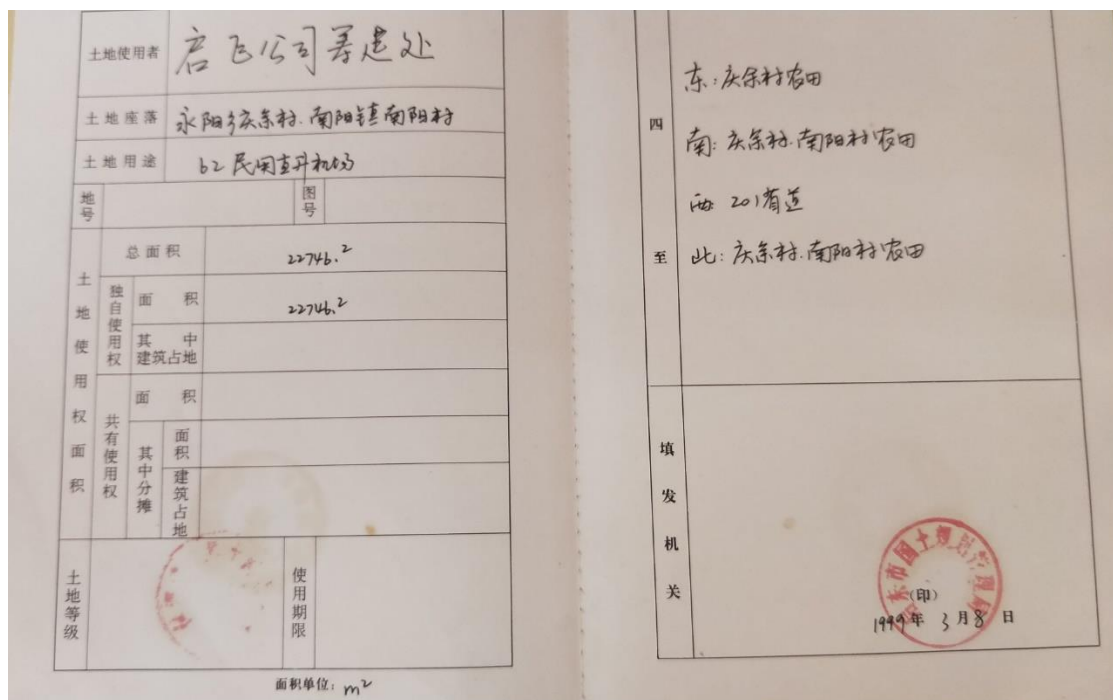 土地使用者 启飞公司筹建处
土地座落 永阳乡庆余村.南阳镇南阳村
土地用途 62 民用直升机场
地号
图号
土地使用权面积
总面积 22746.2
独自使用权
面积 22746.2
其中建筑占地
共有使用权
面积
其中分摊
面积
建筑占地
土地等级
使用期限
面积单位: m2
四至
东:庆余村农田
南:庆余村.南阳村农田
西 201省道
北:庆余村.南阳村农田
填发机关
东市国土规划管理局
(印)
1999年 3月8日